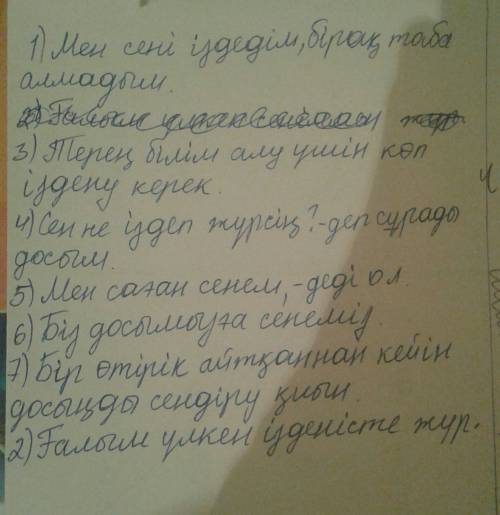 1) Мен сені іздедім, бірақ таба
алмадым.
2) Ғалым
3) Терең білім алу үшін көп
іздену керек.
4) Сен не іздеп жүрсің? - деп сұрады
досым.
5) Мен саған сенем, - деді ол.
6) Біз досымызға сенеміз.
7) Бір өтірік айтқаннан кейін
досыңды сендіру қиын.
2) Ғалым үлкен ізденісте жүр.